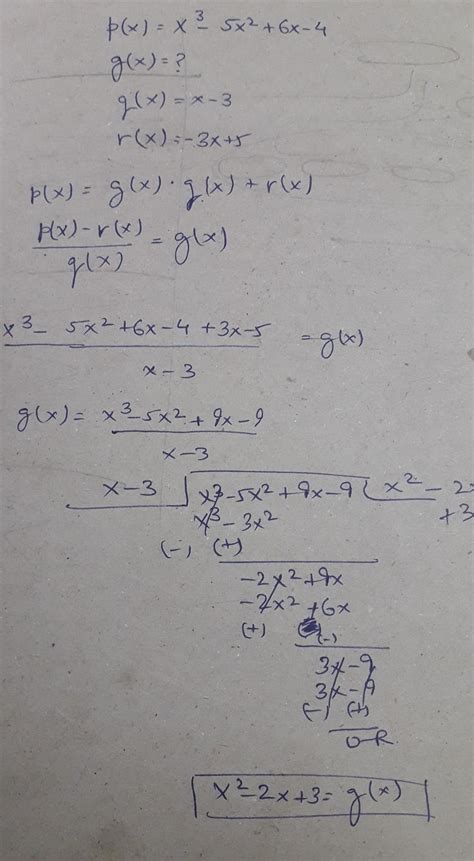 p(x) = x³ - 5x² + 6x - 4
g(x) = ?
q(x) = x - 3
r(x) = -3x + 5
p(x) = g(x) · q(x) + r(x)
p(x) - r(x) / q(x) = g(x)
x³ - 5x² + 6x - 4 + 3x - 5 / x - 3 = g(x)
g(x) = x³ - 5x² + 9x - 9 / x - 3
x - 3 ) x³ - 5x² + 9x - 9 ( x² - 2x
+ 3
x³ - 3x²
(-) (+)
-2x² + 9x
-2x² + 6x
(+) (-)
3x - 9
3x - 9
(-) (+)
0 - R
x² - 2x + 3 = g(x)